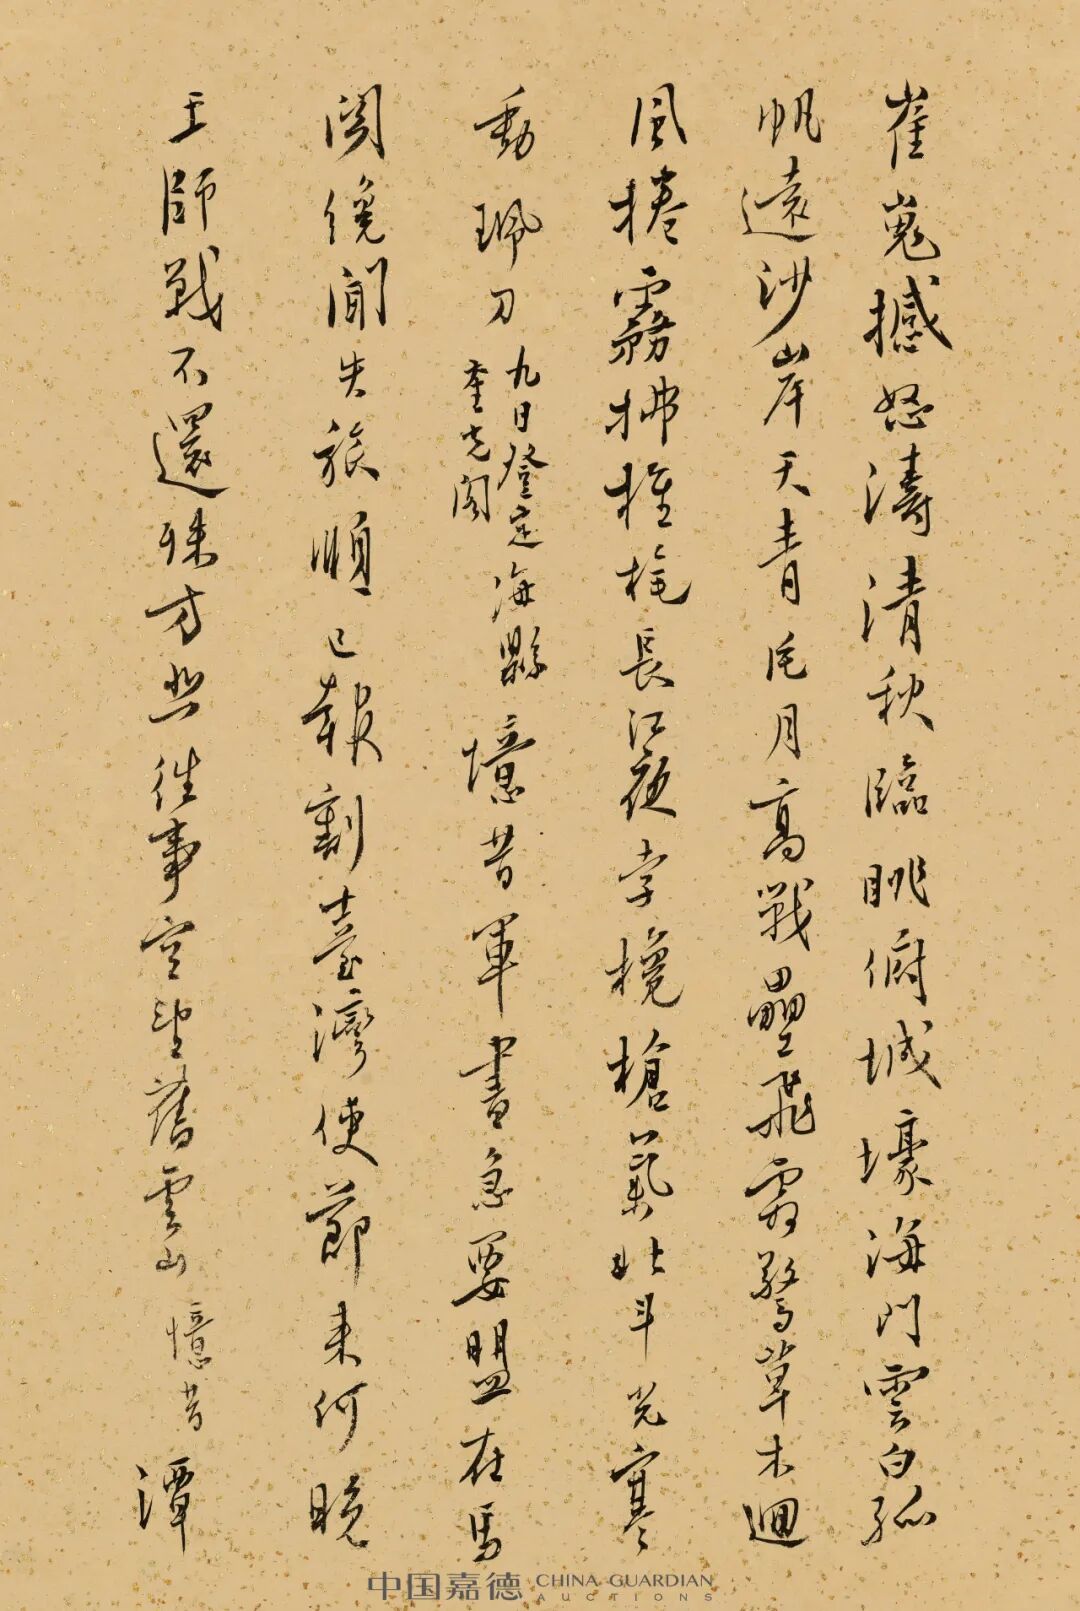 崔嵬撼怒濤清秋臨眺俯城壕海門雲白孤
帆遠沙岸天青片月高戰壘飛霜驚草木迴
風捲霧拂旌旄長江夜孛欃槍氣北斗光寒
動珮刀
九日登定海縣
奎光閣
憶昔軍書急要盟在馬
關俄聞失旅順已報割臺灣使節來何晚
王師戰不還殊方悲往事空望舊雲山
憶昔
潭
中国嘉德 CHINA GUARDIAN
AUCTIONS